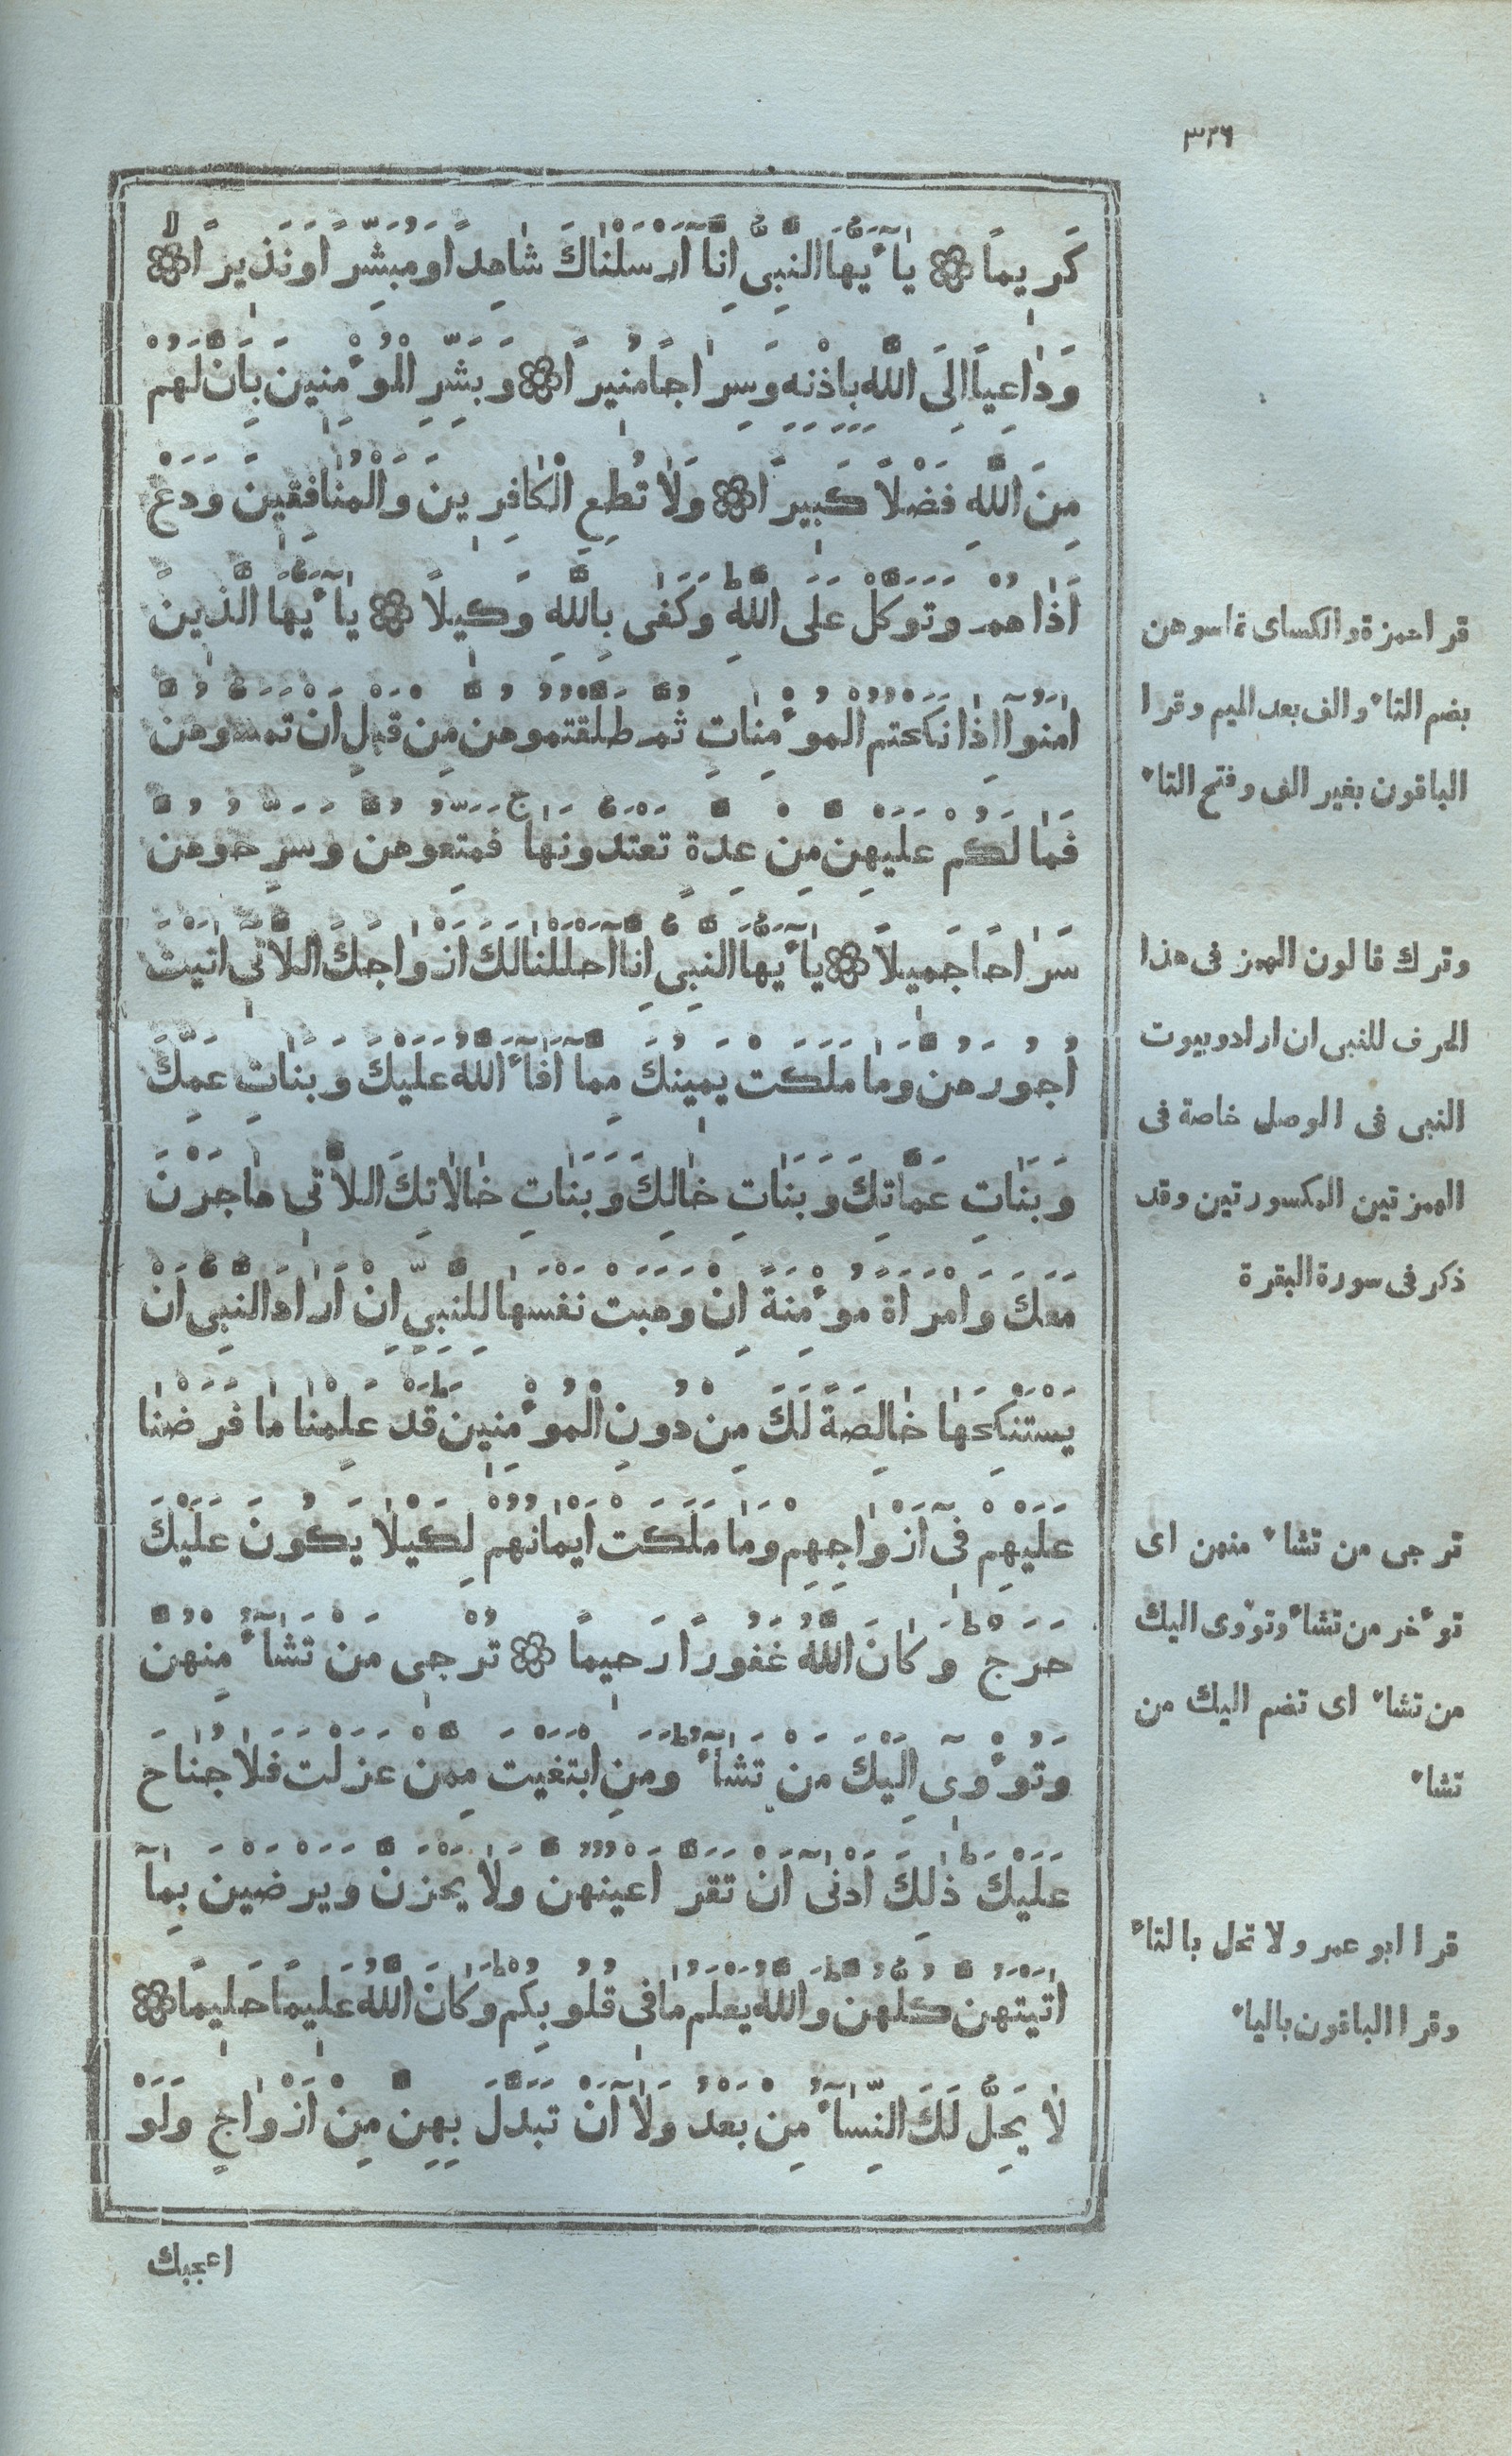 ٣٢٦
كَرِيمًا ۞ يَآأَيُّهَا النَّبِىُّ اِنَّآ اَرْسَلْنَاكَ شَاهِدًا وَمُبَشِّرًا وَنَذِيرًا ۞
وَدَاعِيًا اِلَى اللَّهِ بِاِذْنِهِ وَسِرَاجًا مُنِيرًا ۞ وَبَشِّرِ الْمُوءْمِنِينَ بِاَنَّ لَهُمْ
مِنَ اللَّهِ فَضْلاً كَبِيرًا ۞ وَلاَ تُطِعِ الْكَافِرِينَ وَالْمُنَافِقِينَ وَدَعْ
اَذَاهُمْ وَتَوَكَّلْ عَلَى اللَّهِ ط وَكَفَى بِاللَّهِ وَكِيلاً ۞ يَآأَيُّهَا الَّذِينَ
اَمَنُوآ اِذَا نَكَحْتُمُ الْمُوءْمِنَاتِ ثُمَّ طَلَّقْتُمُوهُنَّ مِنْ قَبْلِ اَنْ تَمَسُّوهُنَّ
فَمَا لَكُمْ عَلَيْهِنَّ مِنْ عِدَّةٍ تَعْتَدُّونَهَا ج فَمَتِّعُوهُنَّ وَسَرِّحُوهُنَّ
سَرَاحًا جَمِيلاً ۞ يَآأَيُّهَا النَّبِىُّ اِنَّآ اَحْلَلْنَا لَكَ اَزْوَاجَكَ اللاَّتِى اَتَيْتَ
اُجُورَهُنَّ وَمَا مَلَكَتْ يَمِينُكَ مِمَّآ اَفَآءَ اللَّهُ عَلَيْكَ وَبَنَاتِ عَمِّكَ
وَبَنَاتِ عَمَّاتِكَ وَبَنَاتِ خَالِكَ وَبَنَاتِ خَالاَتِكَ اللاَّتِى هَاجَرْنَ
مَعَكَ وَامْرَأَةً مُوءْمِنَةً اِنْ وَهَبَتْ نَفْسَهَا لِلنَّبِىِّ اِنْ اَرَادَ النَّبِىُّ اَنْ
يَسْتَنْكِحَهَا خَالِصَةً لَكَ مِنْ دُونِ الْمُوءْمِنِينَ ط قَدْ عَلِمْنَا مَا فَرَضْنَا
عَلَيْهِمْ فِىآ اَزْوَاجِهِمْ وَمَا مَلَكَتْ اَيْمَانُهُمْ لِكَيْلاَ يَكُونَ عَلَيْكَ
حَرَجٌ ط وَكَانَ اللَّهُ غَفُورًا رَحِيمًا ۞ تُرْجِى مَنْ تَشَآءُ مِنْهُنَّ
وَتُوءْوِىآ اِلَيْكَ مَنْ تَشَآءُ ط وَمَنِ ابْتَغَيْتَ مِمَّنْ عَزَلْتَ فَلاَ جُنَاحَ
عَلَيْكَ ط ذَلِكَ اَدْنَىآ اَنْ تَقَرَّ اَعْيُنُهُنَّ وَلاَ يَحْزَنَّ وَيَرْضَيْنَ بِمَآ
اَتَيْتَهُنَّ كُلُّهُنَّ ط وَاللَّهُ يَعْلَمُ مَا فِى قُلُوبِكُمْ ط وَكَانَ اللَّهُ عَلِيمًا حَلِيمًا ۞
لاَ يَحِلُّ لَكَ النِّسَآءُ مِنْ بَعْدُ وَلاَآ اَنْ تَبَدَّلَ بِهِنَّ مِنْ اَزْوَاجٍ وَلَوْ
اعجبك
قرا حمزة والكساى تماسوهن
بضم التاء والف بعد الميم وقرا
الباقون بغير الف وفتح التاء
وترك قالون الهمز فى هذا
الحرف للنبى ان اراد وبيوت
النبى فى الوصل خاصة فى
الهمزتين المكسورتين وقد
ذكر فى سورة البقرة
ترجى من تشاء منهن اى
توءخر من تشاء وتووى اليك
من تشاء اى تضم اليك من
تشاء
قرا ابو عمرو لا تحل بالتاء
وقرا الباقون بالياء